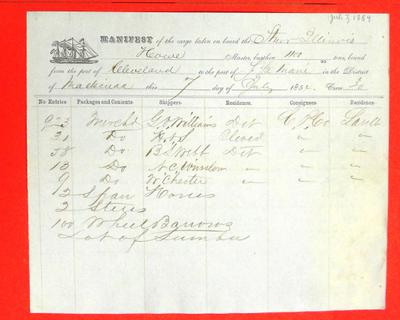 July 7, 1854
MANIFEST of the cargo taken on board the Stmr Illinois
Howe Master, burthen 1100 tons, bound
from the port of Cleveland to the port of in the District
of Mackinac this 7 day of July 1854
No Entries Packages and Contents Shippers Residence. Consignees Residence
Merchd G. Williams Det Sault
Do H & S Cleved "
38 Do B. L. Webb Det "
13 Do N. C. Winslow " "
9 Do W. Chester " "
12 Span Horses
2 Steers
100 Wheel Barrows
Lot of Lumber